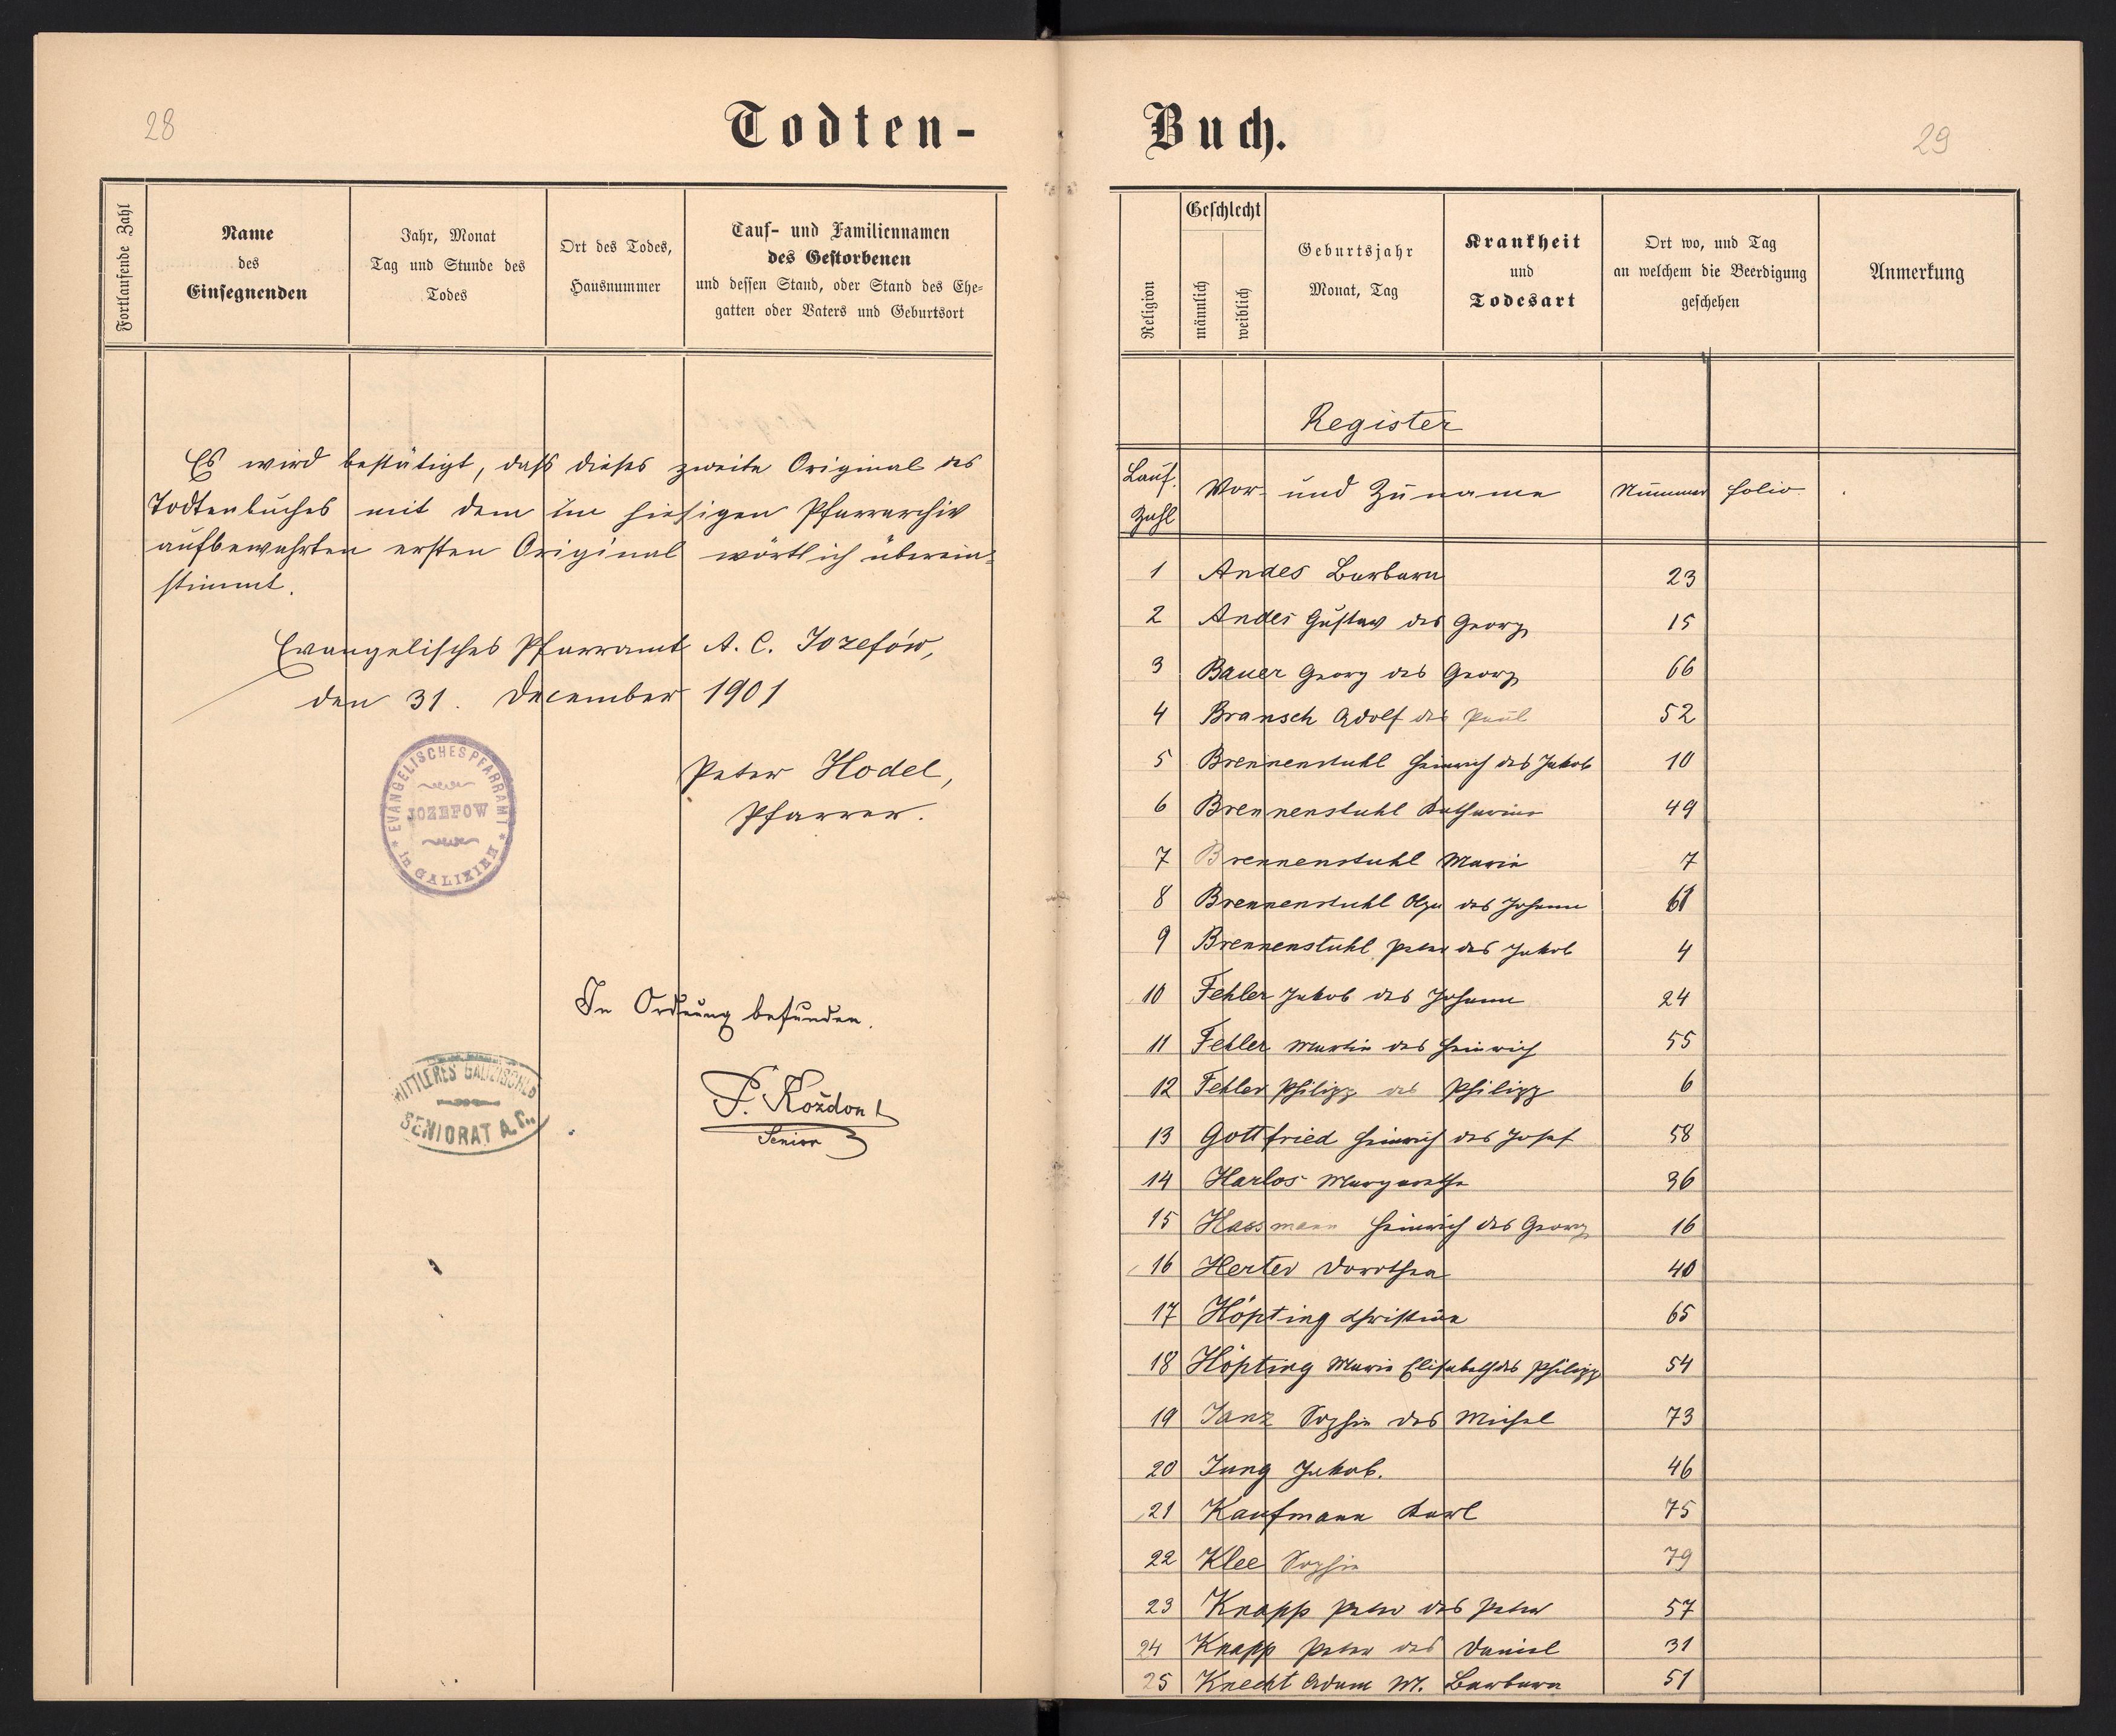 28
Todten-
Fortlaufende Zahl
Name
des
Einsegnenden
Jahr, Monat
Tag und Stunde des
Todes
Ort des Todes,
Hausnummer
Tauf- und Familiennamen
des Gestorbenen
und dessen Stand, oder Stand des Ehe-
gatten oder Vaters und Geburtsort
Es wird bestätigt, daß dieses zweite Original des
Todtenbuches mit dem im hiesigen Pfarrarchiv
aufbewahrten ersten Original wörtlich überein-
stimmt.
Evangelisches Pfarramt A. C. Jozefów,
den 31. December 1901
EVANGELISCHES PFARRAMT
JOZEFOW
in GALIZIEN
Peter Hodel,
Pfarrer.
In Ordnung befunden.
MITTLERES GALIZISCHES
SENIORAT A. C.
P. Kożdon
Senior
Buch.
29
Religion
Geschlecht
männlich
weiblich
Geburtsjahr
Monat, Tag
Krankheit
und
Todesart
Ort wo, und Tag
an welchem die Beerdigung
geschehen
Anmerkung
Register
Lauf. Zahl
Vor- und Zuname Nummer folio
1 Andes Barbara 23
2 Andes Gustav des Georg 15
3 Bauer Georg des Georg 66
4 Bransch Adolf des Paul 52
5 Brennenstuhl Heinrich des Jakob 10
6 Brennenstuhl Katharina 49
7 Brennenstuhl Marie 7
8 Brennenstuhl Olga des Johann 61
9 Brennenstuhl Peter des Jakob 4
10 Fehler Jakob des Johann 24
11 Fehler Martin des Heinrich 55
12 Fehler Philipp des Philipp 6
13 Gottfried Heinrich des Josef 58
14 Harlos Margarethe 36
15 Hassmann Heinrich des Georg 16
16 Herter Dorothea 40
17 Höpting Christine 65
18 Höpting Marie Elisabeth des Philipp 54
19 Janz Sophie des Michel 73
20 Jung Jakob. 46
21 Kaufmann Karl 75
22 Klee Sophie 79
23 Knapp Peter des Peter 57
24 Knapp Peter des Daniel 31
25 Knecht Adam M. Barbara 51